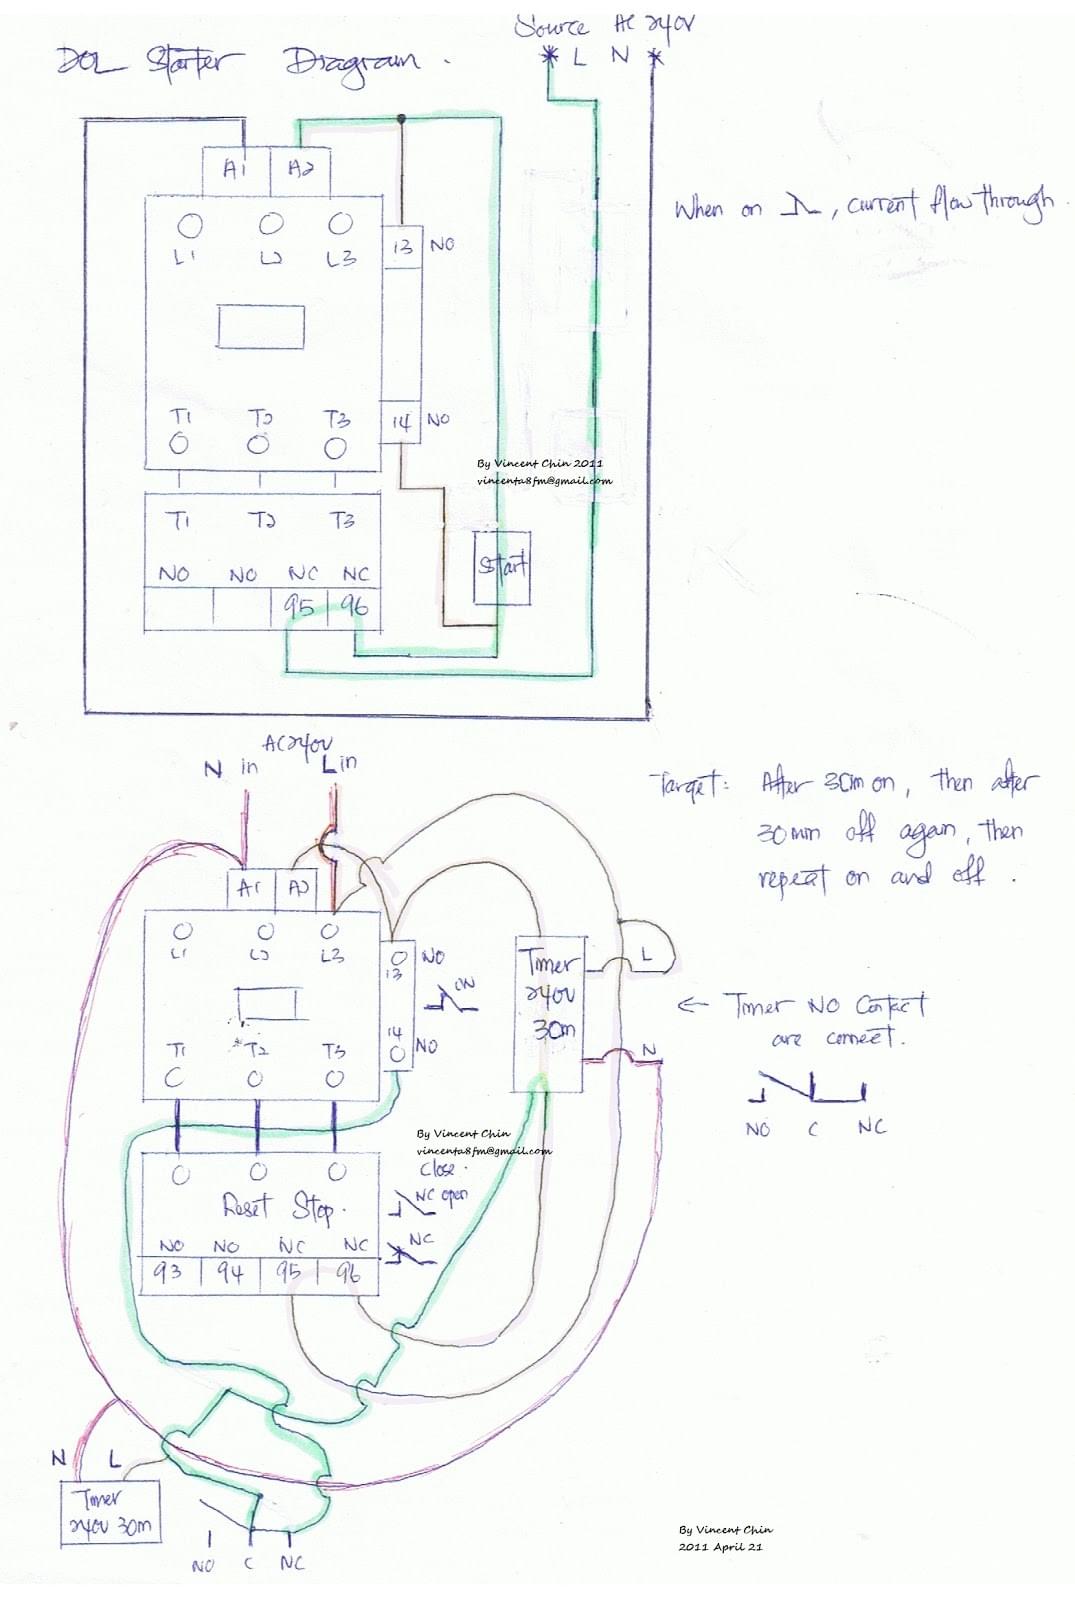 Source AC 240V
DOL Starter Diagram.
L N
A1 A2
When on , current flow through.
13 NO
L1 L2 L3
T1 T2 T3
14 NO
By Vincent Chin 2011
vincenta8fm@gmail.com
T1 T2 T3
Start
NO NO NC NC
95 96
AC240V
N in L in
Target: After 30m on, then after
30min off again, then
repeat on and off.
A1 A2
L1 L2 L3
NO
13
ON
Timer
240V
30m
L
← Timer NO Contact
are connect.
14
NO
T1 T2 T3
N
NO C NC
By Vincent Chin
vincenta8fm@gmail.com
Close.
NC open
Reset Stop.
NC
NO NO NC NC
93 94 95 96
N L
Timer
240V 30m
NO C NC
By Vincent Chin
2011 April 21